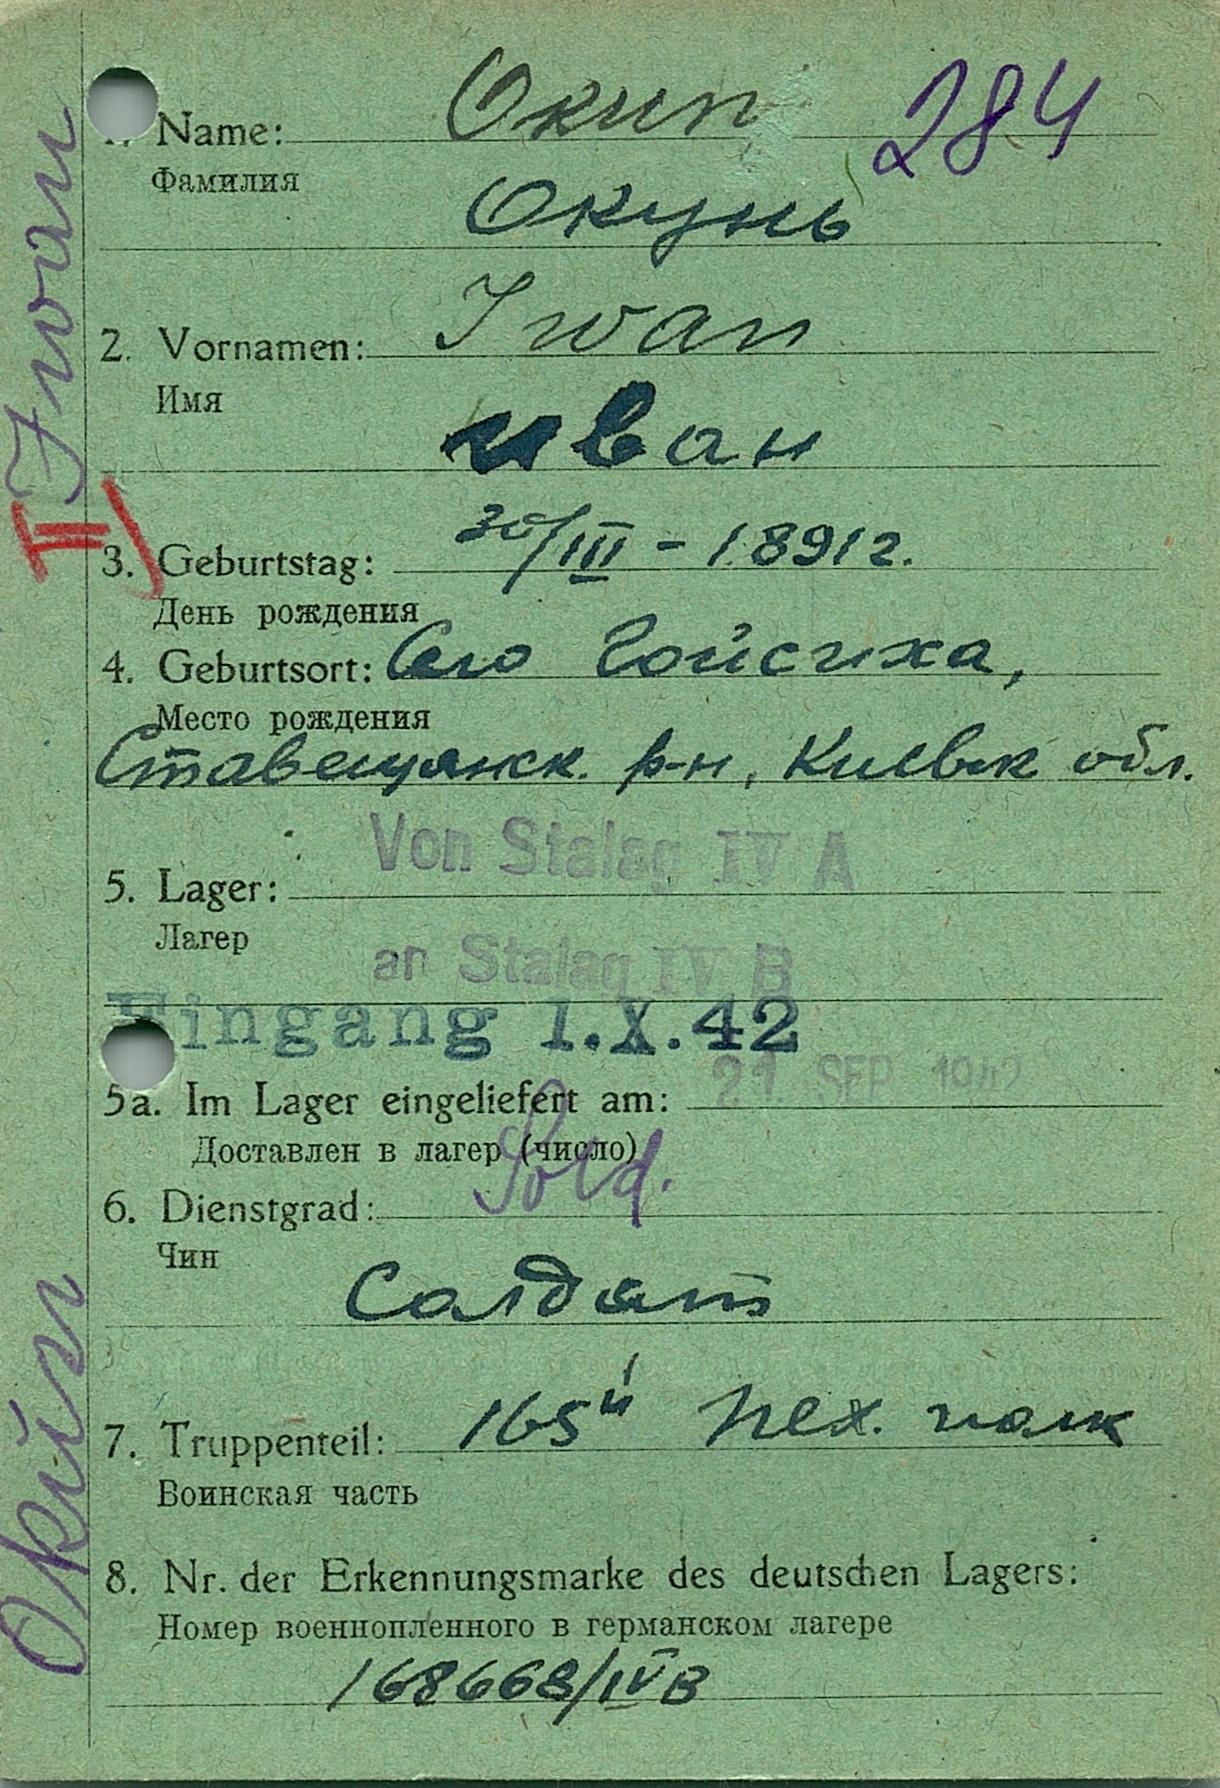 Iwan
II
Okijn
284
1. Name: Okun
Фамилия
Окунь
2. Vornamen: Iwan
Имя
Иван
3. Geburtstag: 30/III - 1891г.
День рождения
4. Geburtsort: Село Гойсиха,
Место рождения
Ставещанск. р-н, Киевск обл.
Von Stalag IV A
5. Lager:
Лагер
an Stalag IV B
Eingang 1.X.42
21. SEP. 1942
5a. Im Lager eingeliefert am:
Доставлен в лагер (число)
6. Dienstgrad: Sold.
Чин
Солдат
7. Truppenteil: 165й пех. полк
Воинская часть
8. Nr. der Erkennungsmarke des deutschen Lagers:
Номер военнопленного в германском лагере
168668/IVB